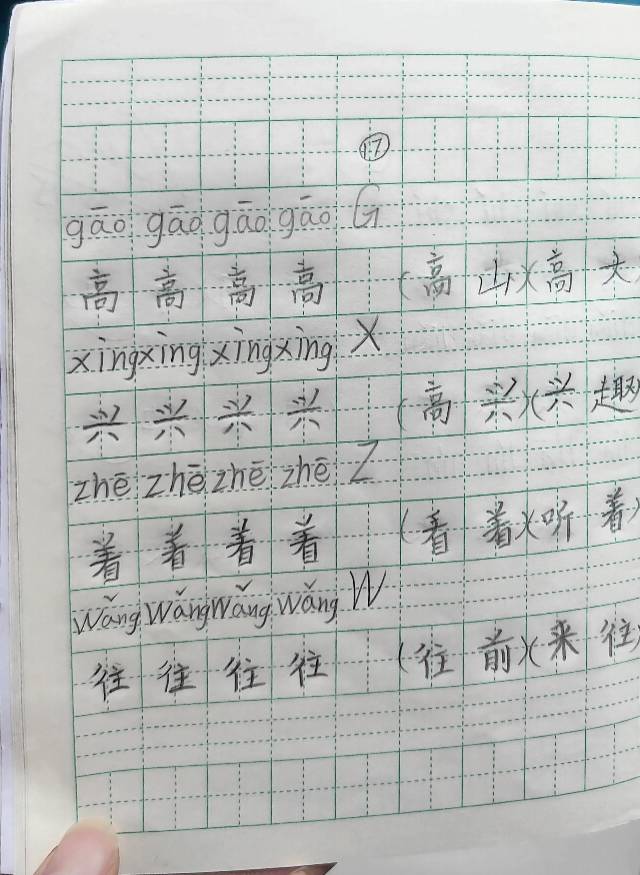 17
gāo gāo gāo gāo G
高 高 高 高 (高山)(高大)
xìng xìng xìng xìng X
兴 兴 兴 兴 (高兴)(兴趣)
zhē zhē zhē zhē Z
着 着 着 着 (看着)(听着)
wǎng wǎng wǎng wǎng W
往 往 往 往 (往前)(来往)